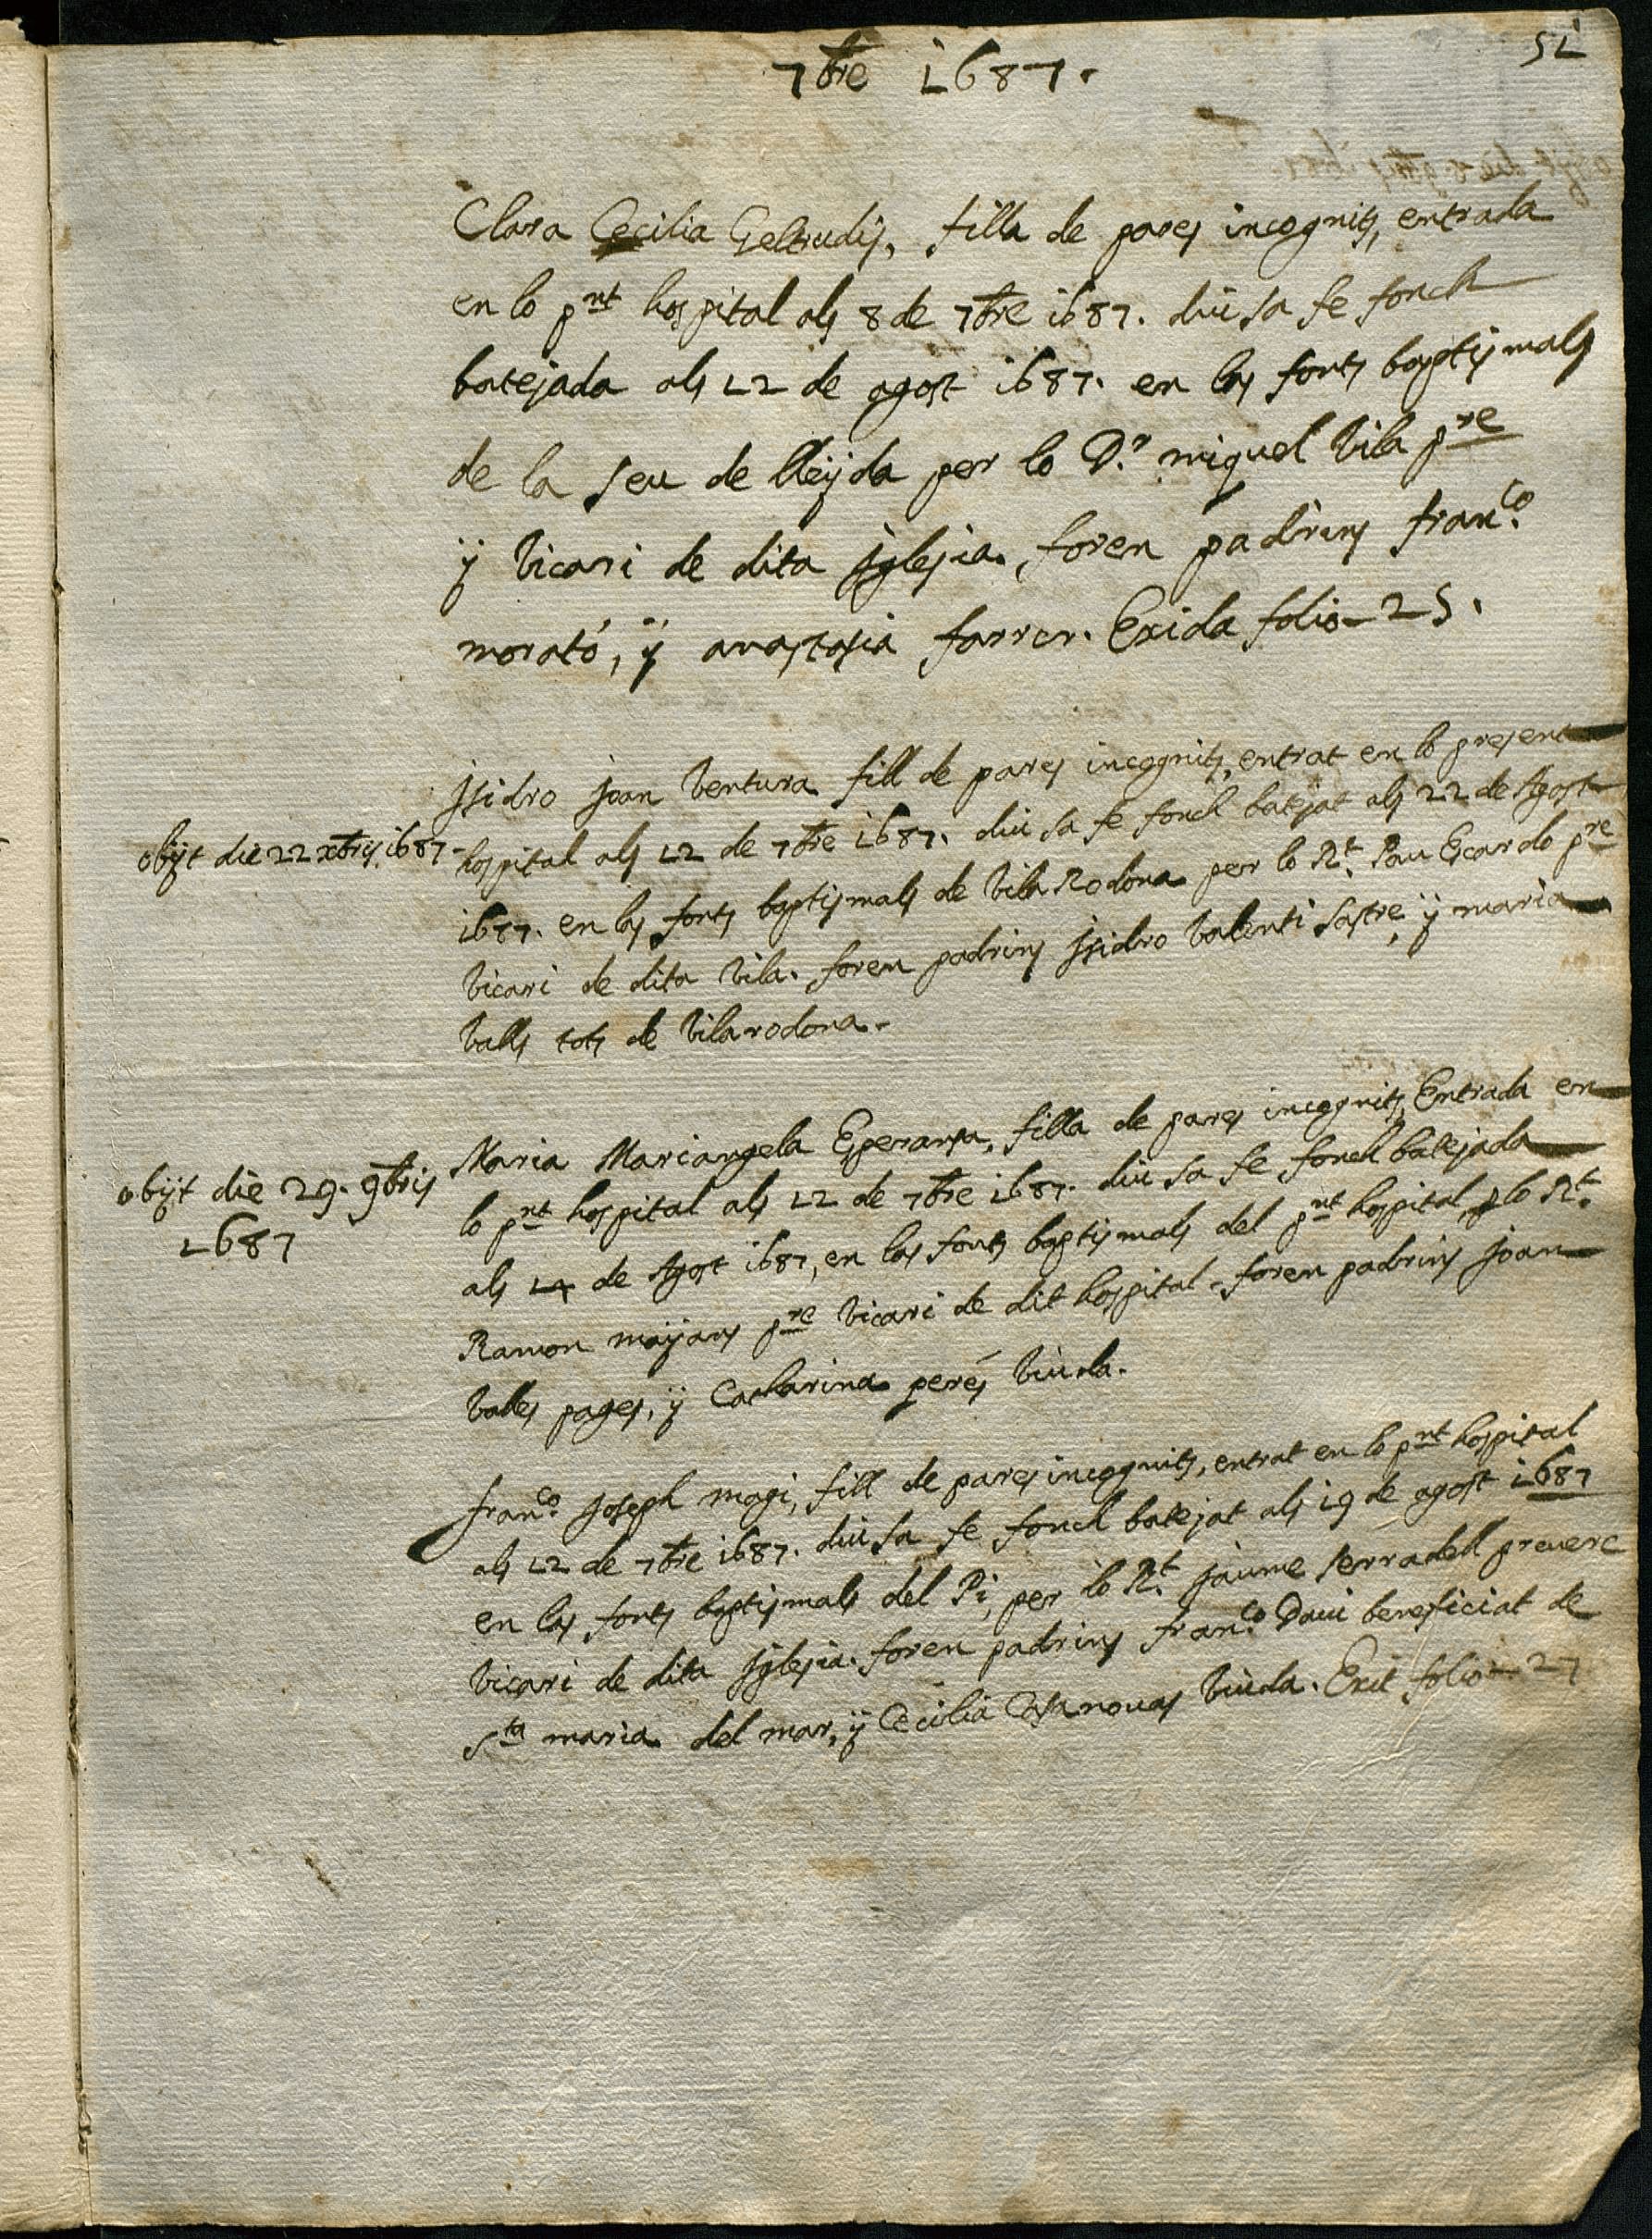 51
7bre 1687.
Clara Cecilia Geltrudis, filla de pares incognits, entrada
en lo pnt hospital als 8 de 7bre 1687. diu sa fe fonch
batejada als 12 de agost 1687. en las fonts baptismals
de la seu de lleyda per lo Dr miquel Vila pre
ÿ Vicari de dita Iglesia, foren padrins franco.
morató, ÿ anastasia farrer. Exida folio 25.
Isidro Joan Ventura fill de pares incognits, entrat en lo present
obijt die 22 xbris 1687
hospital als 12 de 7bre 1687. diu sa fe fonch batejat als 22 de Agost
1687. en las fonts baptismals de Vila Rodona per lo Rt. Pau Escardo pre
Vicari de dita Vila. foren padrins Isidro Valenti Sastre, ÿ maria
Valls tots de Vilarodona.
Maria Mariangela Esperansa, filla de pares incognits, Entrada en
obijt die 29. 9bris
1687
lo pnt hospital als 12 de 7bre 1687. diu sa fe fonch batejada
als 14 de Agost 1687, en las fonts baptismals del pnt hospital, p lo Rt.
Ramon maÿans pre Vicari de dit hospital. foren padrins Joan
Valles pages, ÿ Catharina perés Viuda.
franco. Joseph magi, fill de pares incognits, entrat en lo pnt hospital
als 12 de 7bre 1687. diu sa fe fonch batejat als 19 de agost 1687
en las fonts baptismals del Pi, per lo Rt. Jaume serradell prevere
Vicari de dita Iglesia. foren padrins franco. Daui beneficiat de
Sta maria del mar, ÿ Cecilia Casanovas Viuda. Exit folio 27